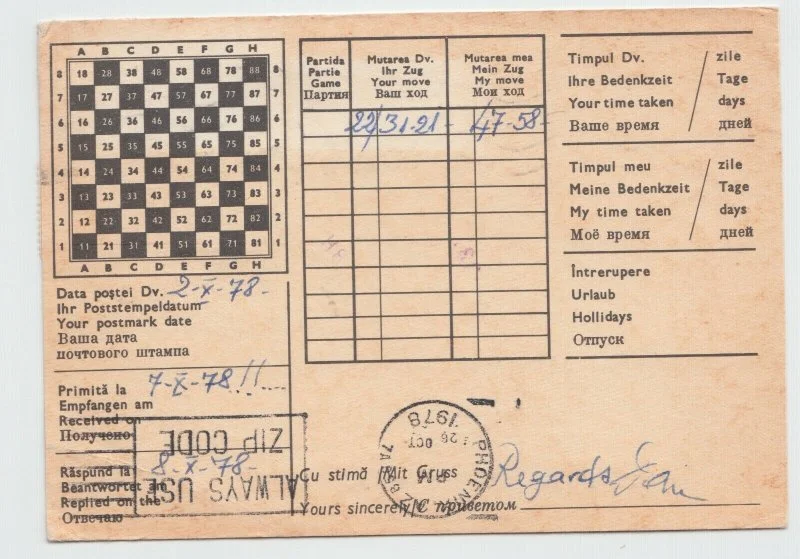 A B C D E F G H
8 18 28 38 48 58 68 78 88 8
7 17 27 37 47 57 67 77 87 7
6 16 26 36 46 56 66 76 86 6
5 15 25 35 45 55 65 75 85 5
4 14 24 34 44 54 64 74 84 4
3 13 23 33 43 53 63 73 83 3
2 12 22 32 42 52 62 72 82 2
1 11 21 31 41 51 61 71 81 1
A B C D E F G H
Data poștei Dv. 2-X-78-
Ihr Poststempeldatum
Your postmark date
Ваша дата
почтового штампа
Primită la 7-X-78!!
Empfangen am
Received on
Получено
Răspund la 8-X-78-
Beantwortet am
Replied on the
Отвечаю
ALWAYS USE
ZIP CODE
Partida
Partie
Game
Партия
Mutarea Dv.
Ihr Zug
Your move
Ваш ход
Mutarea mea
Mein Zug
My move
Мои ход
22/ 31-21- 47-58-
Timpul Dv. / zile
Ihre Bedenkzeit / Tage
Your time taken / days
Ваше время / дней
Timpul meu / zile
Meine Bedenkzeit / Tage
My time taken / days
Моё время / дней
Întrerupere
Urlaub
Hollidays
Отпуск
PHOENIX AZ
26 OCT
PM
1978
Cu stimă /Mit Gruss Regards
Yours sincerely/С приветом